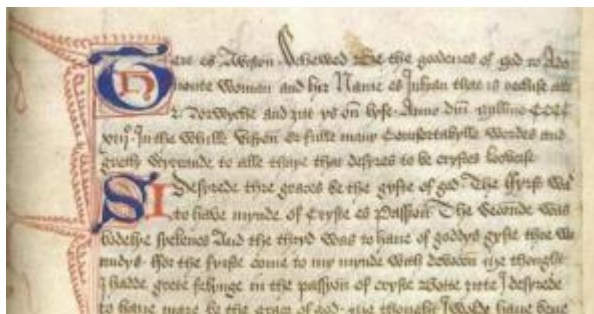 Here es Avision Schewed Be the goodenes of god to Ade
uoute Woman and hir Name es Julyan that is recluse atte
Norwyche and ȝit ys on lyfe Anno dni millmo CCCC
xiijo In the whilke Vision er fulle many Comfortabylle wordes and
gretly Styrrande to alle thaye that desyres to be crystes looverse
I Desyrede thre graces be the gyfte of god The ffyrst was
to have mynde of Cryste es Passion The Secounde was
bodelye syeknes And the thryd was to haue of goddys gyfte thre wo
undys ffor the fyrste come to my mynde with devocon me thought
I hadde grete felynge in the passyon of cryste Botte ȝitte I desyrede
to haue mare be the grace of god me thought I wolde haue bene